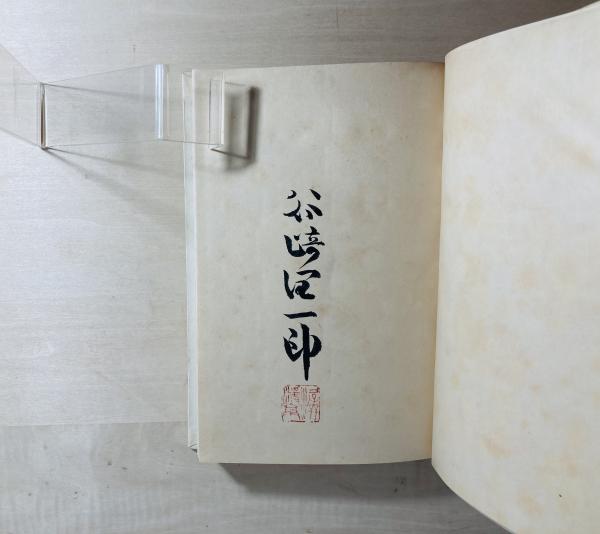 谷崎潤一郎